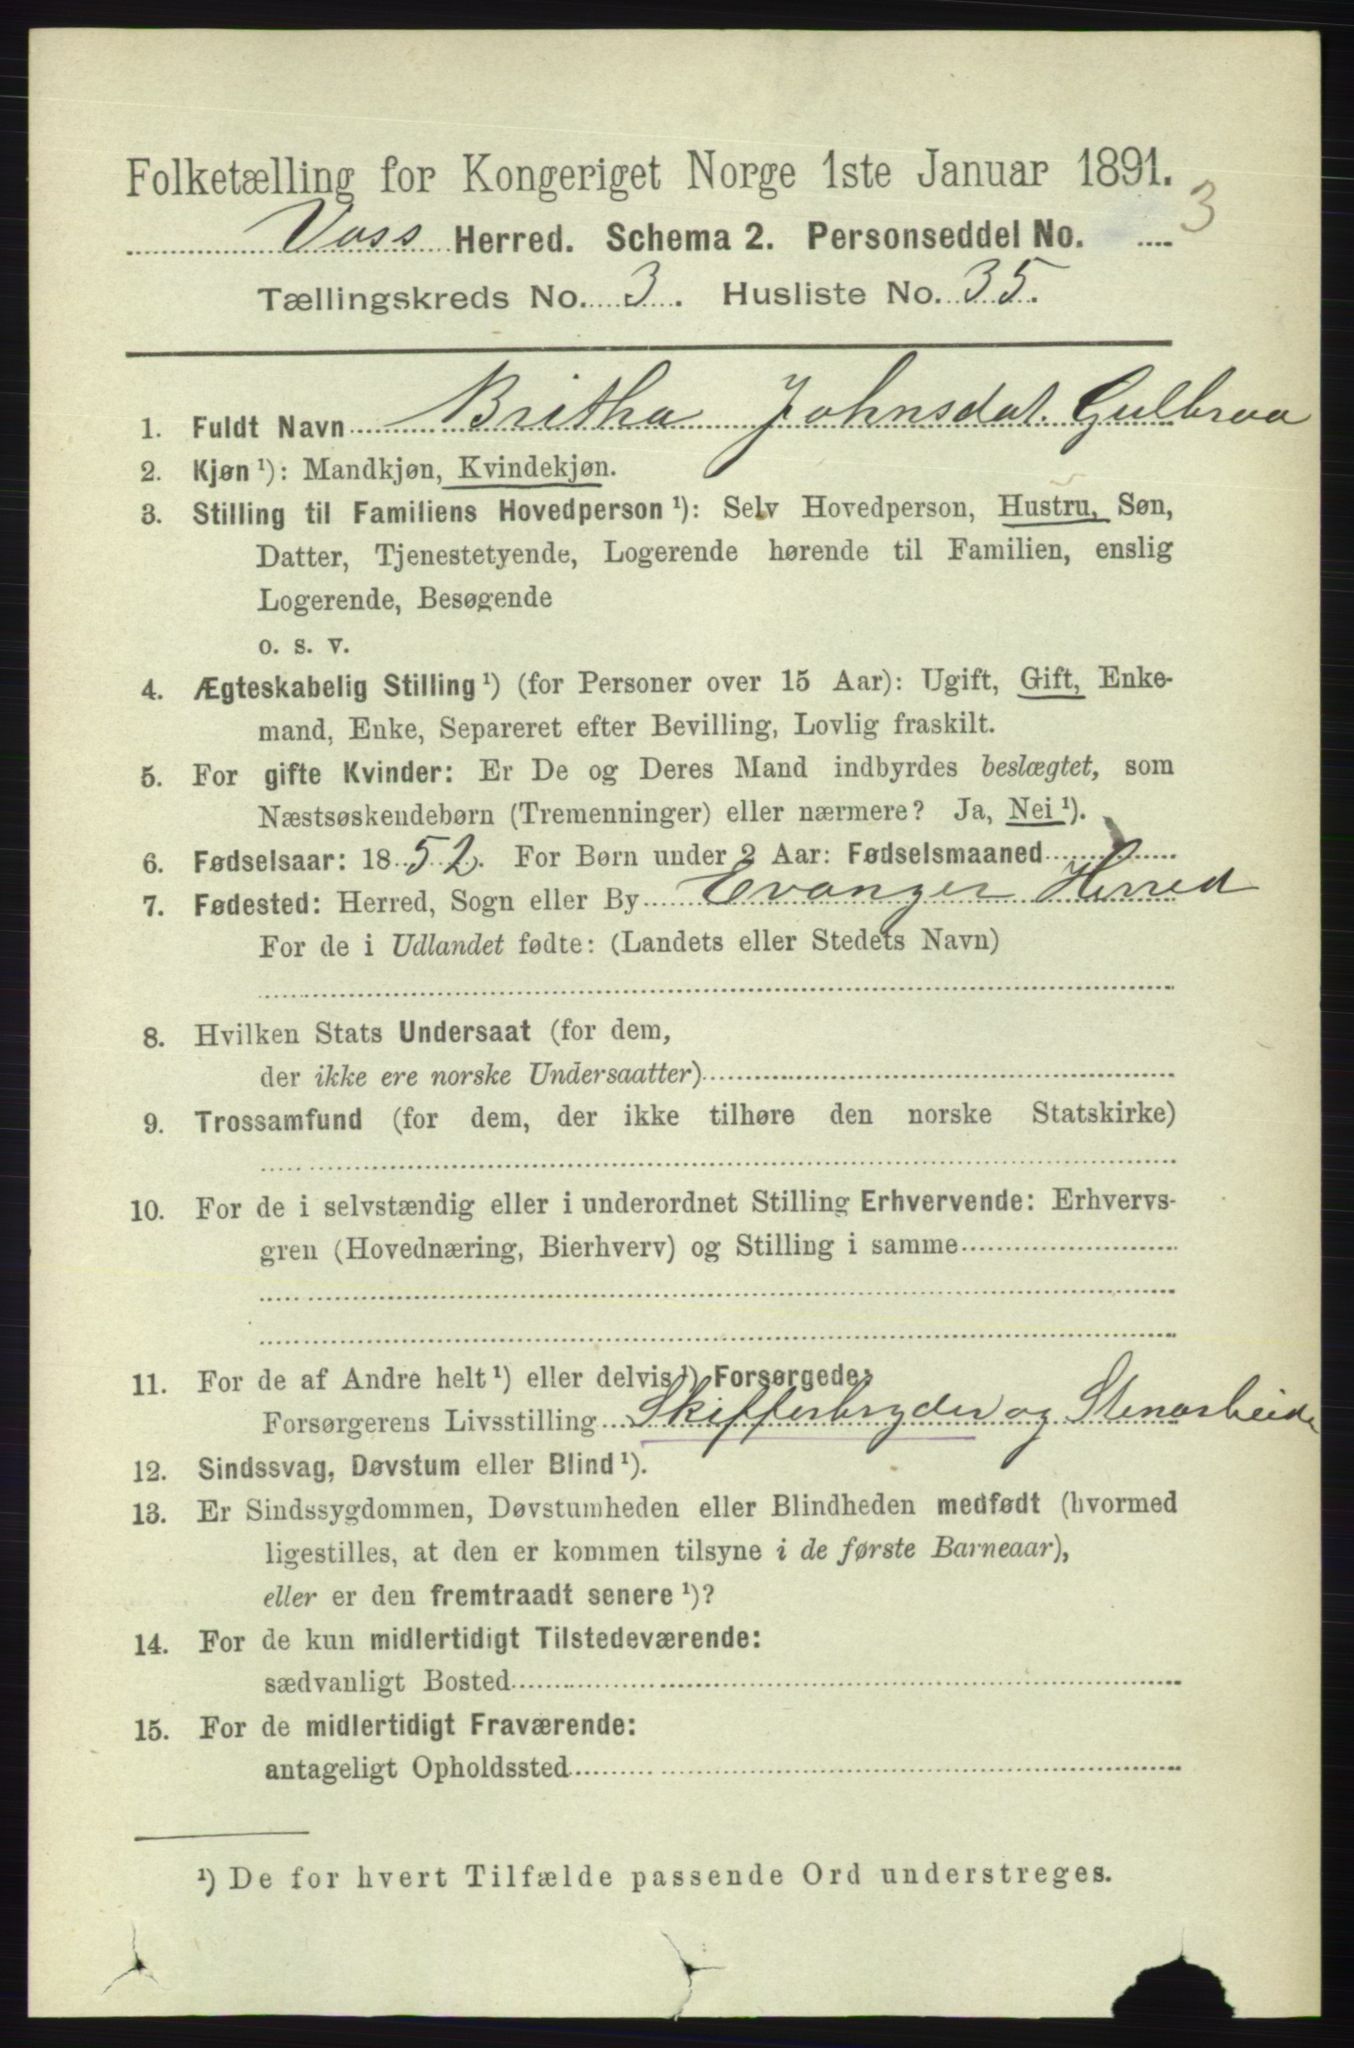 Folketælling for Kongeriget Norge 1ste Januar 1891.
Voss Herred. Schema 2. Personseddel No. 3
Tællingskreds No. 3. Husliste No. 35.
1. Fuldt Navn Britha Johnsdat. Gulbraa
2. Kjøn ¹): Mandkjøn, Kvindekjøn.
3. Stilling til Familiens Hovedperson ¹): Selv Hovedperson, Hustru, Søn,
Datter, Tjenestetyende, Logerende hørende til Familien, enslig
Logerende, Besøgende
o. s. v.
4. Ægteskabelig Stilling ¹) (for Personer over 15 Aar): Ugift, Gift, Enke-
mand, Enke, Separeret efter Bevilling, Lovlig fraskilt.
5. For gifte Kvinder: Er De og Deres Mand indbyrdes beslægtet, som
Næstsøskendebørn (Tremenninger) eller nærmere? Ja, Nei ¹).
6. Fødselsaar: 1852. For Børn under 2 Aar: Fødselsmaaned
7. Fødested: Herred, Sogn eller By Evanger Herred
For de i Udlandet fødte: (Landets eller Stedets Navn)
8. Hvilken Stats Undersaat (for dem,
der ikke ere norske Undersaatter)
9. Trossamfund (for dem, der ikke tilhøre den norske Statskirke)
10. For de i selvstændig eller i underordnet Stilling Erhvervende: Erhvervs-
gren (Hovednæring, Bierhverv) og Stilling i samme
11. For de af Andre helt ¹) eller delvis ¹) Forsørgede:
Forsørgerens Livsstilling Skifferbryder og Stenarbeide
12. Sindssvag, Døvstum eller Blind ¹).
13. Er Sindssygdommen, Døvstumheden eller Blindheden medfødt (hvormed
ligestilles, at den er kommen tilsyne i de første Barneaar),
eller er den fremtraadt senere ¹)?
14. For de kun midlertidigt Tilstedeværende:
sædvanligt Bosted
15. For de midlertidigt Fraværende:
antageligt Opholdssted
¹) De for hvert Tilfælde passende Ord understreges.